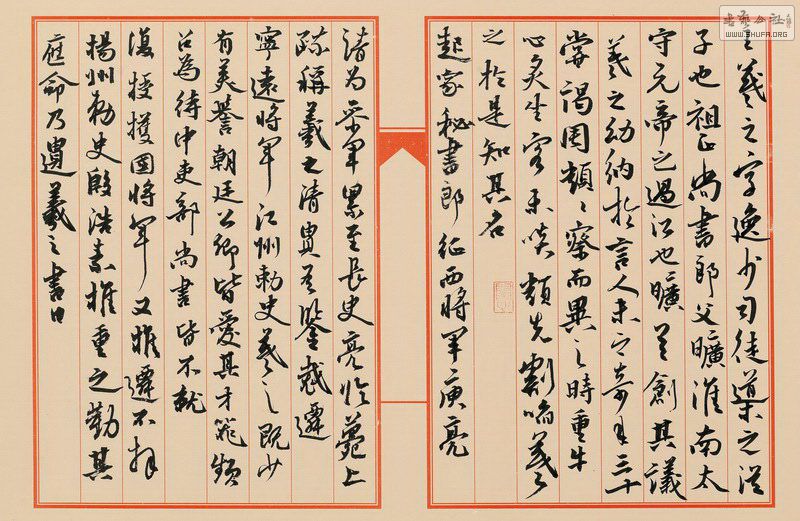 王羲之字逸少司徒導之從
子也祖正尚書郎父曠淮南太
守元帝之過江也曠首創其議
羲之幼訥於言人未之奇年三十
嘗謁周顗〻察而異之時重牛
心炙坐客未啖顗先割啗羲
之於是知其名
起家秘書郎征西將軍庾亮
請為參軍累至長史亮臨薨上
疏稱羲之清貴有鑒裁遷
寧遠將軍江州刺史羲之既少
有美譽朝廷公卿皆愛其才器頻
召為侍中吏部尚書皆不就
復授護國將軍又推遷不拜
揚州刺史殷浩素推重之勸其
應命乃遺羲之書曰
WWW.SHUFA.ORG